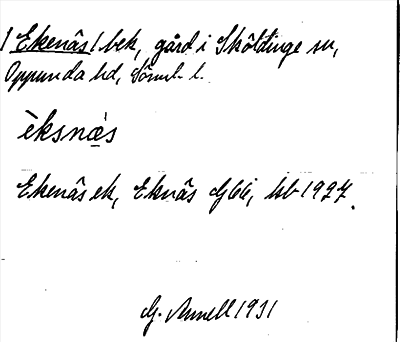 / Ekenäs / bek, gård i Sköldinge sn,
Oppunda hd, Söml. l.
èksnæ̀s
Ekenäs ek, Eknäs GEK, kb 1927.
G. Annell 1931